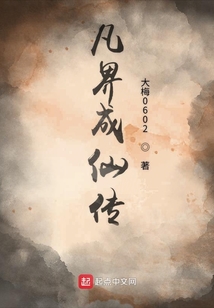 凡界成仙传
大梅0602◎著
起点
起点中文网